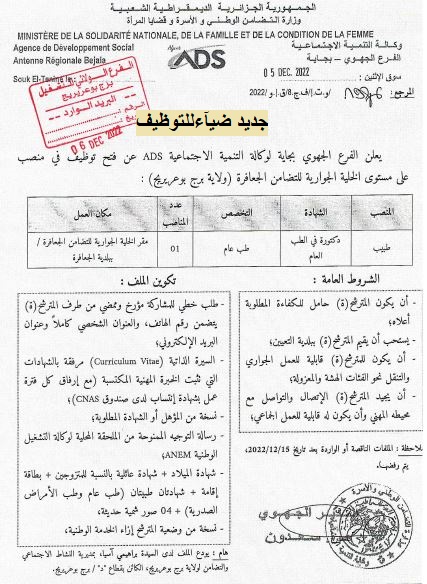 الجمهورية الجزائرية الديمقراطية الشعبية
وزارة التضامن الوطني و الأسرة و قضايا المرأة
MINISTÈRE DE LA SOLIDARITÉ NATIONALE, DE LA FAMILLE ET DE LA CONDITION DE LA FEMME
Agence de Développement Social
Antenne Régionale Bejaia
Souk El-Tenine le :
ADS
وكالة التنمية الاجتماعية
الفرع الجهوي - بجاية
سوق الإثنين :
05 DEC. 2022
المرجع :
/و.ت.إ/ف.ج.8/ق.إ/2022
الفرع الولائي للتشغيل
برج بوعريريج
البريد الوارد
06 DEC 2022
جديد ضيآءللتوظيف
يعلن الفرع الجهوي بجاية لوكالة التنمية الاجتماعية ADS عن فتح توظيف في منصب
على مستوى الخلية الجوارية للتضامن الجعافرة (ولاية برج بوعريريج)
المنصب الشهادة التخصص عدد المناصب مكان العمل
طبيب دكتورة في الطب العام طب عام 01 مقر الخلية الجوارية للتضامن الجعافرة / ببلدية الجعافرة
الشروط العامة :
- أن يكون المترشح(ة) حامل للكفاءة المطلوبة
أعلاه؛
- يستحب أن يقيم المترشح(ة) ببلدية التعيين؛
- أن يكون للمترشح(ة) قابلية للعمل الجواري
والتنقل نحو الفئات الهشة والمعزولة؛
- أن يجيد المترشح(ة) الإتصال والتواصل مع
محيطه المهني وأن يكون له قابلية للعمل الجماعي؛
ملاحظة : الملفات الناقصة أو الواردة بعد تاريخ 2022/12/15،
يتم رفضها.
تكوين الملف :
- طلب خطي للمشاركة مؤرخ وممضي من طرف المترشح(ة)
يتضمن رقم الهاتف، والعنوان الشخصي كاملاً وعنوان
البريد الإلكتروني؛
- السيرة الذاتية (Curriculum Vitae) مرفقة بالشهادات
التي تثبت الخبرة المهنية المكتسبة (مع إرفاق كل فترة
عمل بشهادة إنتساب لدى صندوق CNAS)؛
- نسخة من المؤهل أو الشهادة المطلوبة؛
- رسالة التوجيه الممنوحة من الملحقة المحلية لوكالة التشغيل
الوطنية ANEM؛
- شهادة الميلاد + شهادة عائلية بالنسبة للمتزوجين + بطاقة
إقامة + شهادتان طبيتان (طب عام وطب الأمراض
الصدرية) + 04 صور شمية حديثة؛
- نسخة من وضعية المترشح إزاء الخدمة الوطنية؛
هام : يودع الملف لدى السيدة براهيمي آسيا، بمديرية النشاط الاجتماعي
والتضامن لولاية برج بوعريريج، الكائن بقطاع "د" / برج بوعريريج.